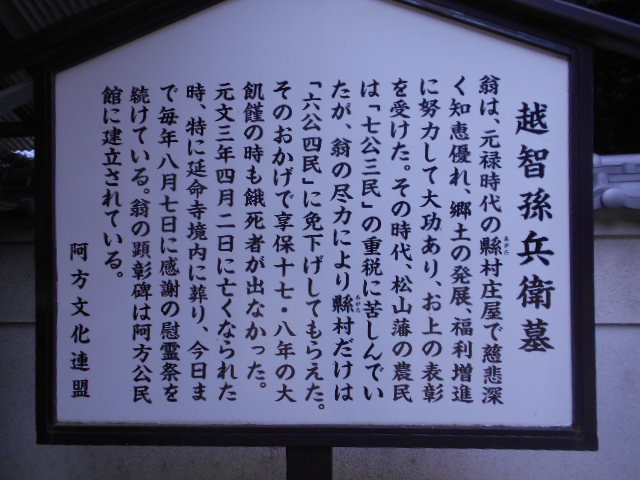 越智孫兵衛墓
翁は、元禄時代の縣村庄屋で慈悲深
あがた
く知恵優れ、郷土の発展、福利増進
に努力して大功あり、お上の表彰
を受けた。その時代、松山藩の農民
は「七公三民」の重税に苦しんでい
たが、翁の尽力により縣村だけは
あがた
「六公四民」に免下げしてもらえた。
そのおかげで享保十七・八年の大
飢饉の時も餓死者が出なかった。
元文三年四月二日に亡くなられた
時、特に延命寺境内に葬り、今日ま
で毎年八月七日に感謝の慰霊祭を
続けている。翁の顕彰碑は阿方公民
館に建立されている。
阿方文化連盟